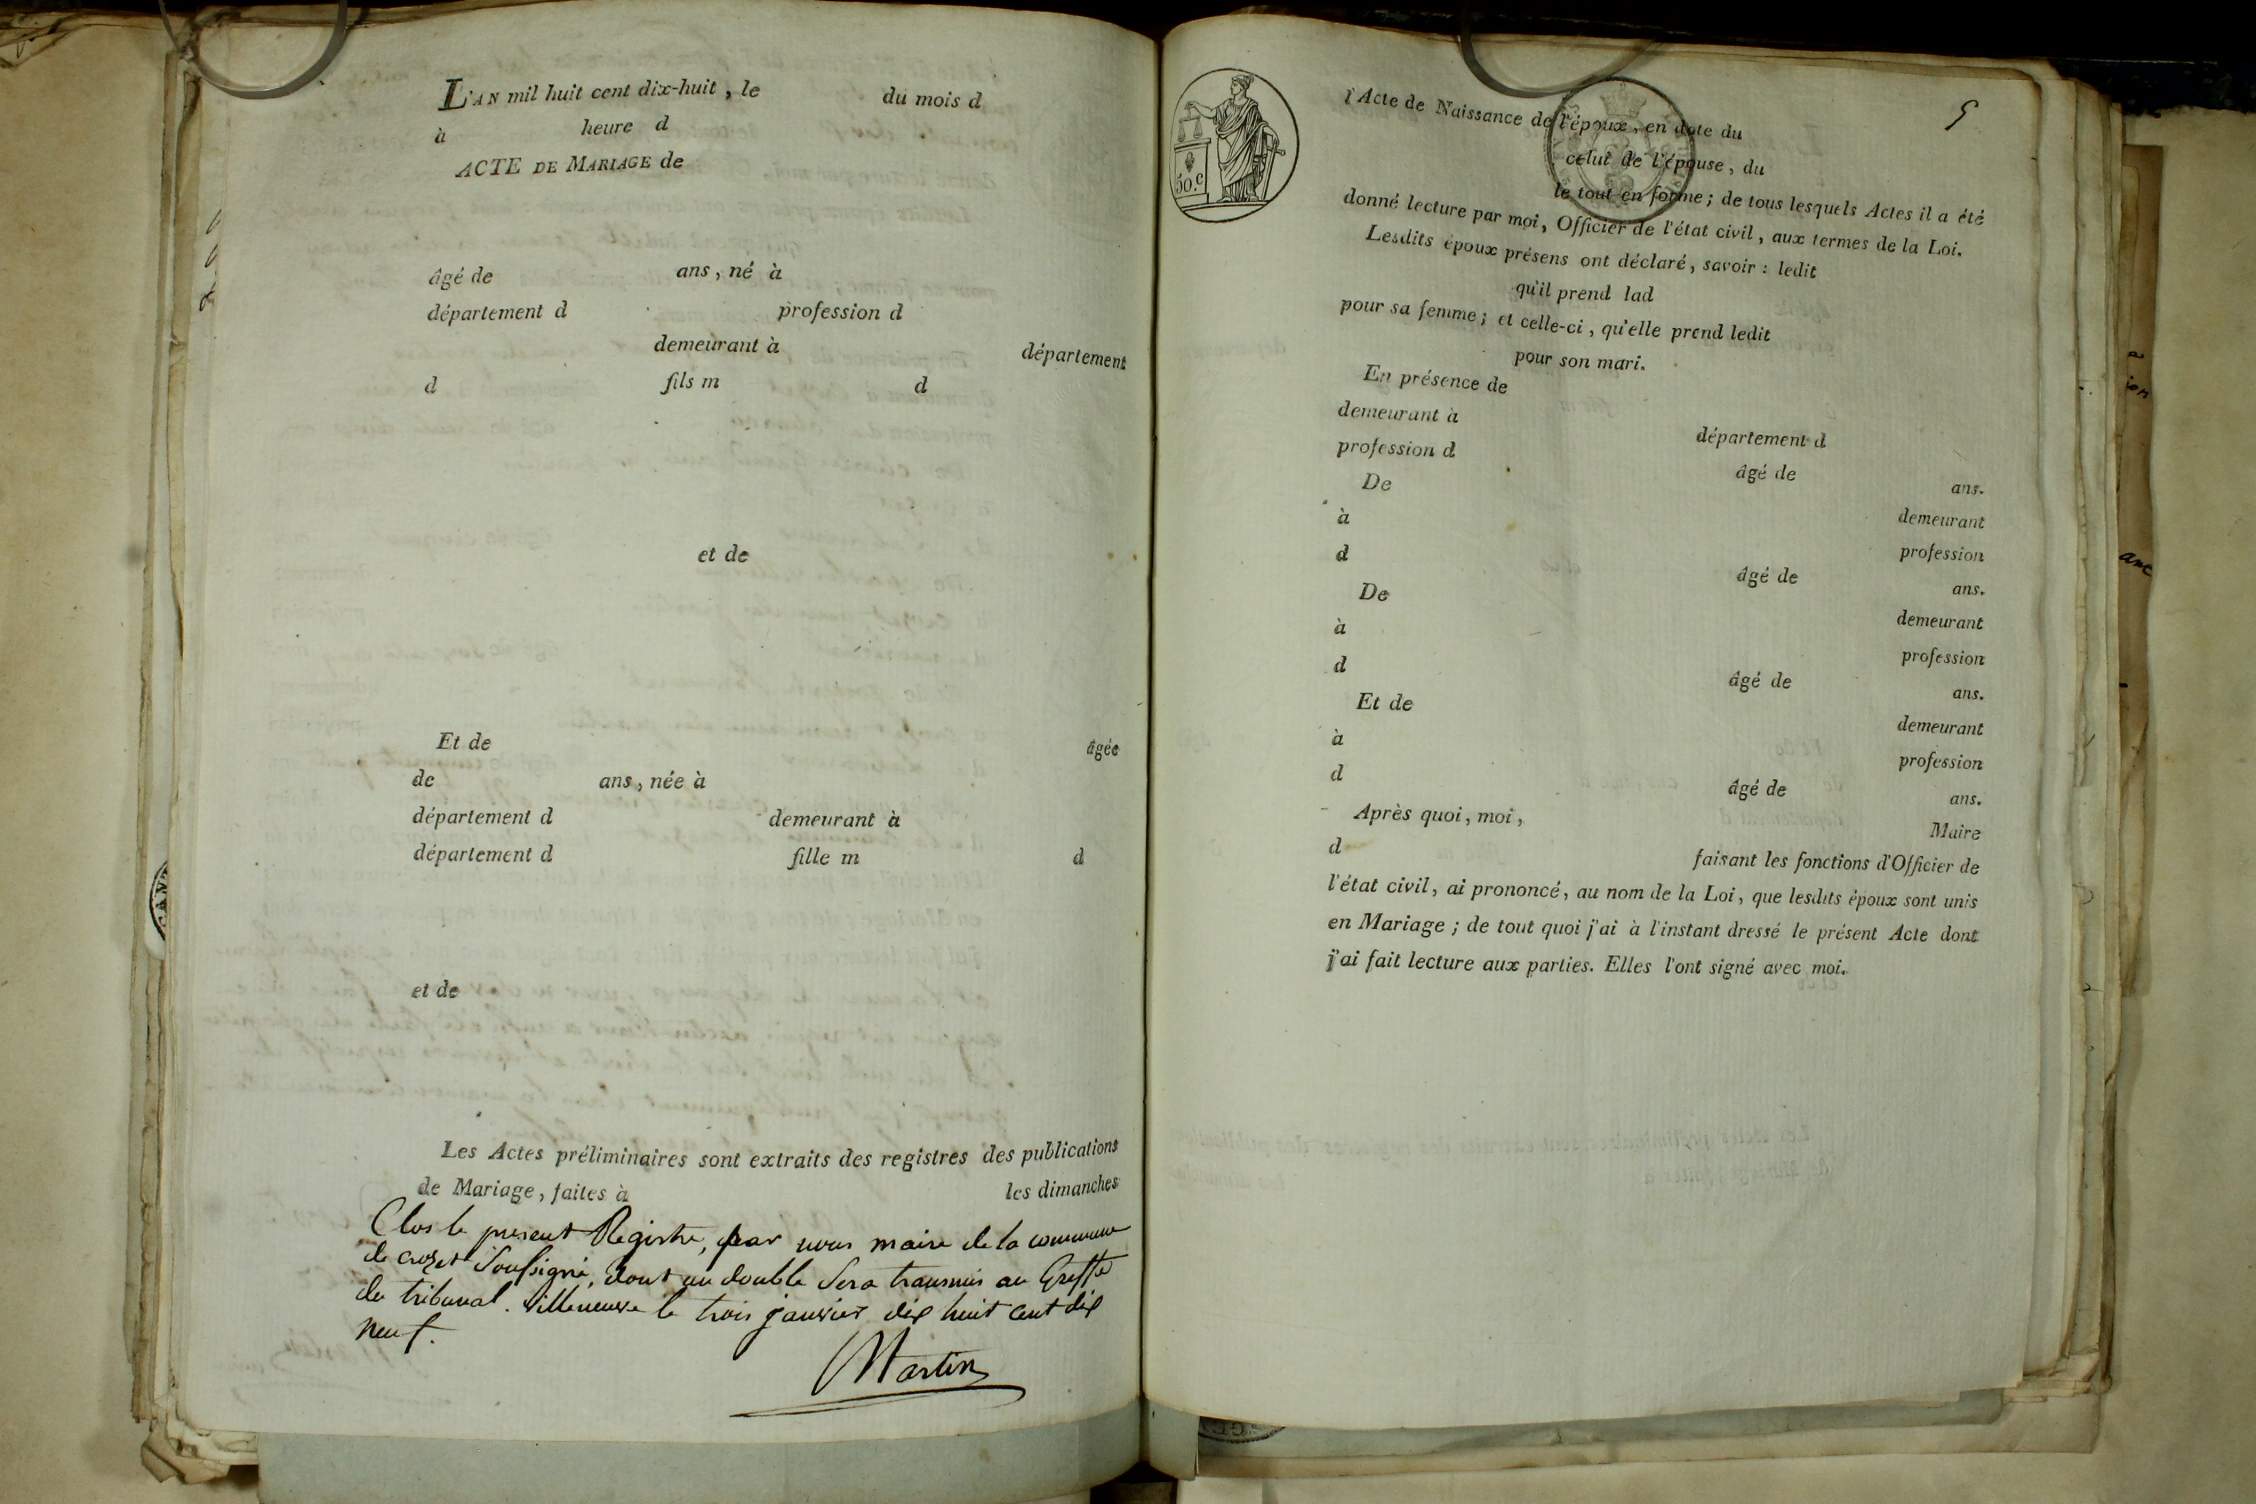 L'AN mil huit cent dix-huit, le du mois d
à heure d
ACTE DE MARIAGE de
âgé de ans, né à
département d profession d
demeurant à département
d fils m d
et de
Et de âgée
de ans, née à
département d demeurant à
département d fille m d
et de
Les Actes préliminaires sont extraits des registres des publications
de Mariage, faites à les dimanches
Clos le présent Registre, par nous maire de la commune
de crozet Soussigné, dont un double Sera transmis au Greffe
du tribunal. Villeneuve le trois janvier dix huit cent dix
neuf.
Martin
5
50.c
l'Acte de Naissance de l'époux, en date du
celui de l'épouse, du
le tout en forme; de tous lesquels Actes il a été
donné lecture par moi, Officier de l'état civil, aux termes de la Loi.
Lesdits époux présens ont déclaré, savoir: ledit
qu'il prend lad
pour sa femme; et celle-ci, qu'elle prend ledit
pour son mari.
En présence de
demeurant à département d
profession d âgé de ans.
De demeurant
à profession
d âgé de ans.
De demeurant
à profession
d âgé de ans.
Et de demeurant
à profession
d âgé de ans.
Après quoi, moi, Maire
d faisant les fonctions d'Officier de
l'état civil, ai prononcé, au nom de la Loi, que lesdits époux sont unis
en Mariage; de tout quoi j'ai à l'instant dressé le présent Acte dont
j'ai fait lecture aux parties. Elles l'ont signé avec moi.